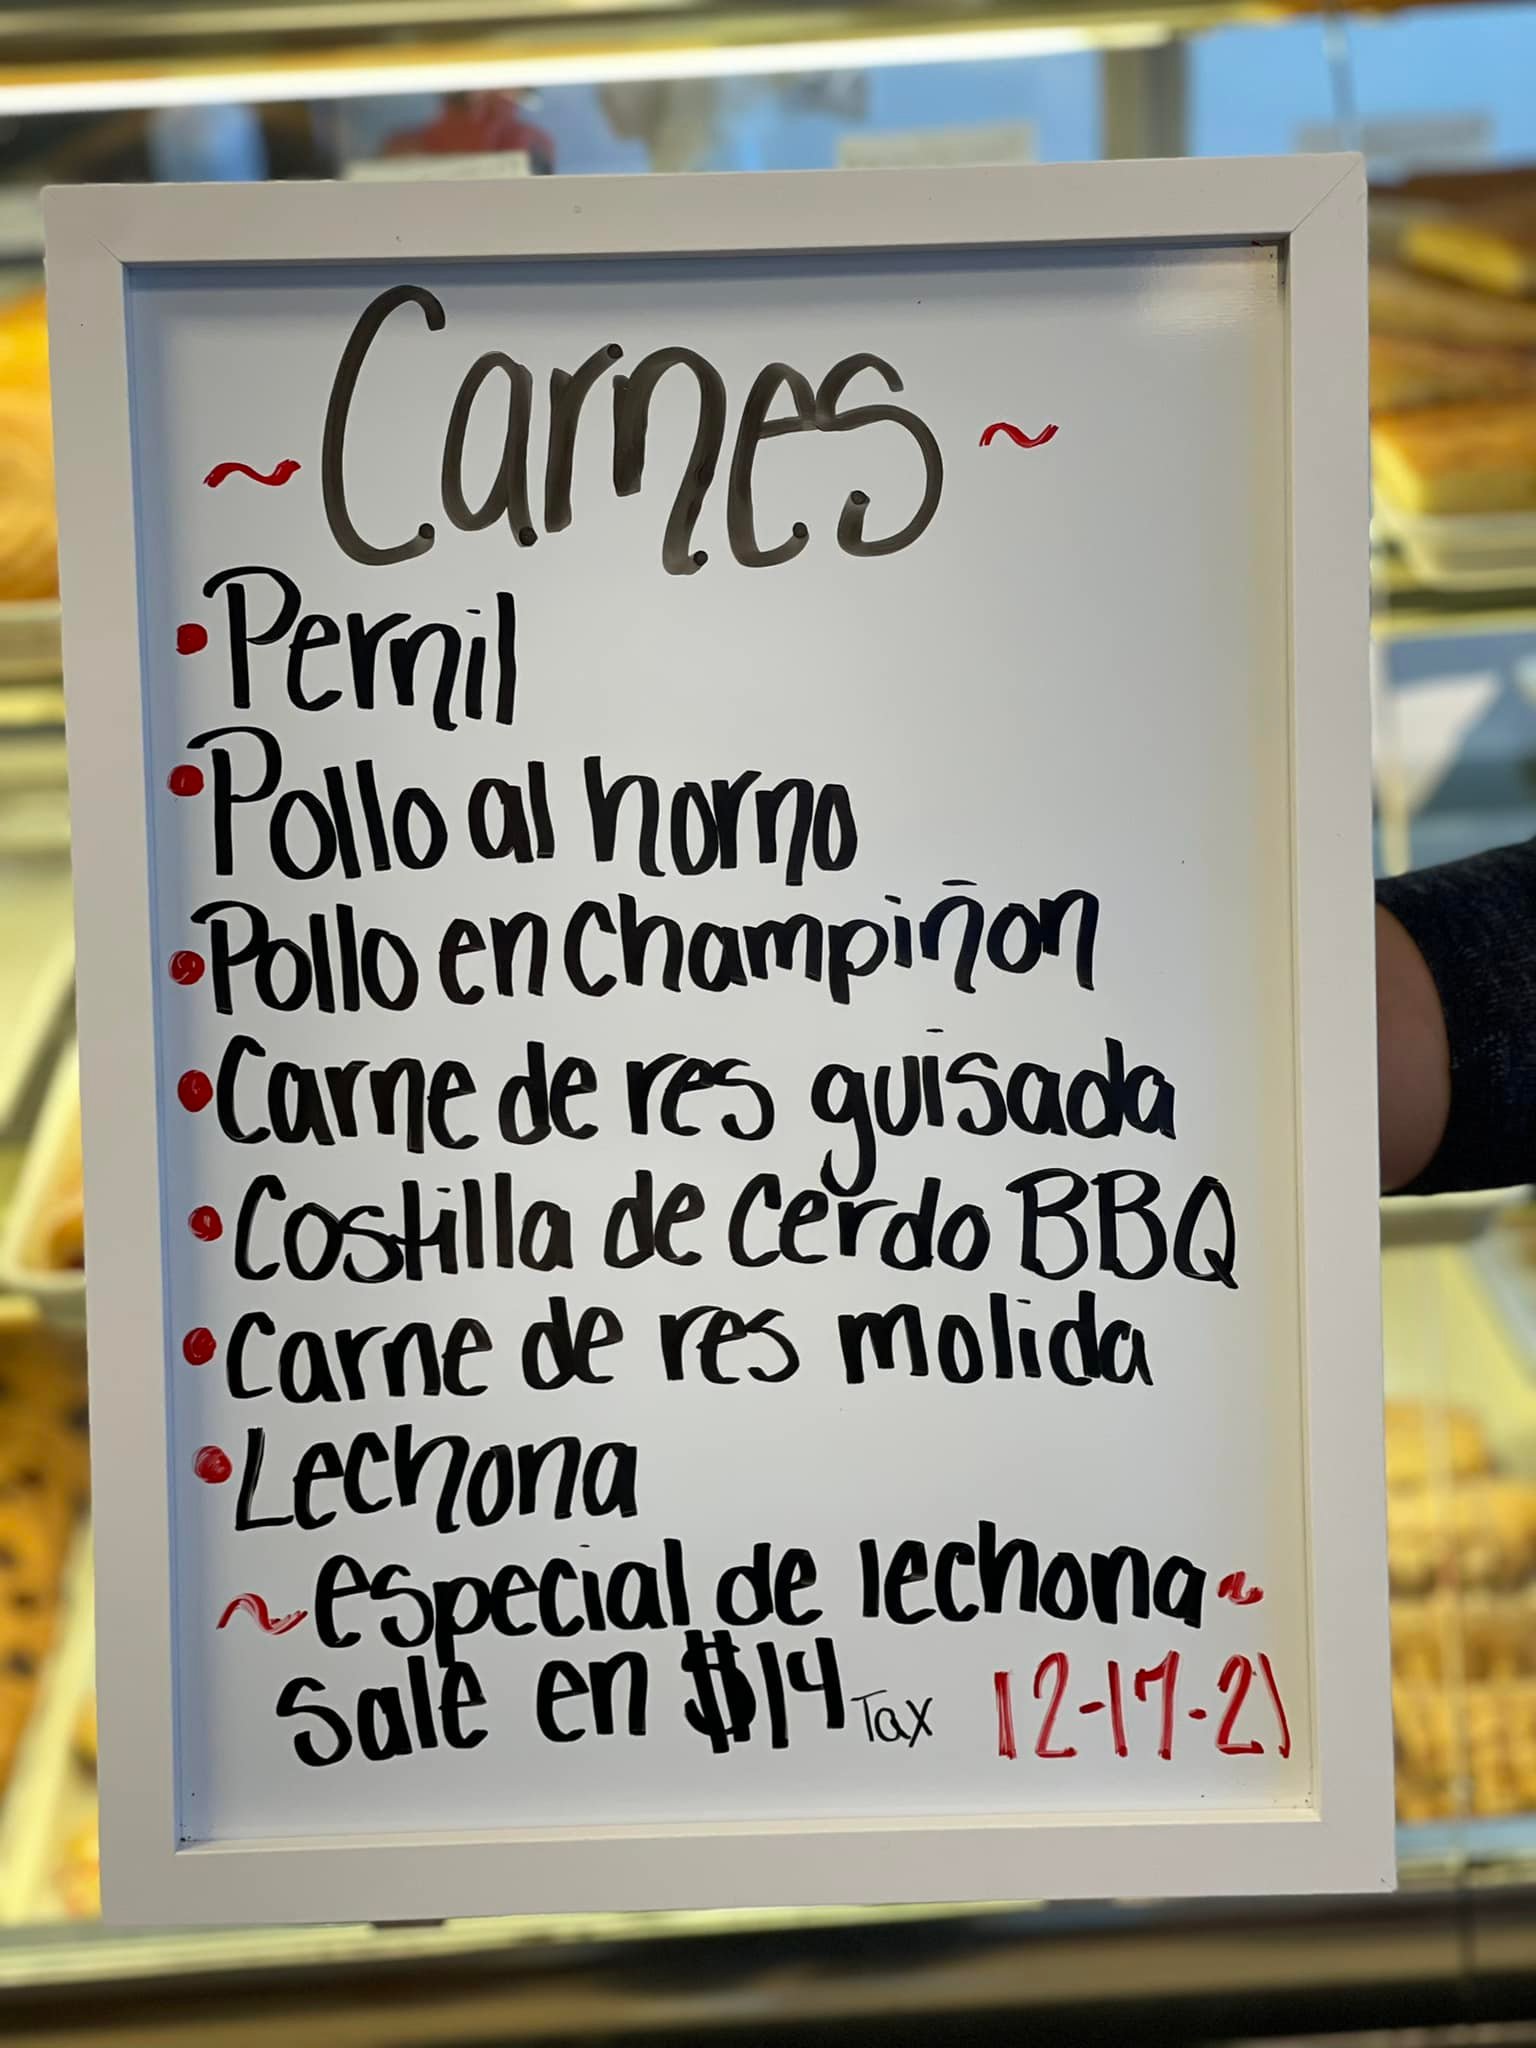 ~Carnes~
•Pernil
•Pollo al horno
•Pollo en Champiñon
•Carne de res guisada
•Costilla de Cerdo BBQ
•Carne de res molida
•Lechona
~especial de lechona~
Sale en $14 Tax 12-17-21